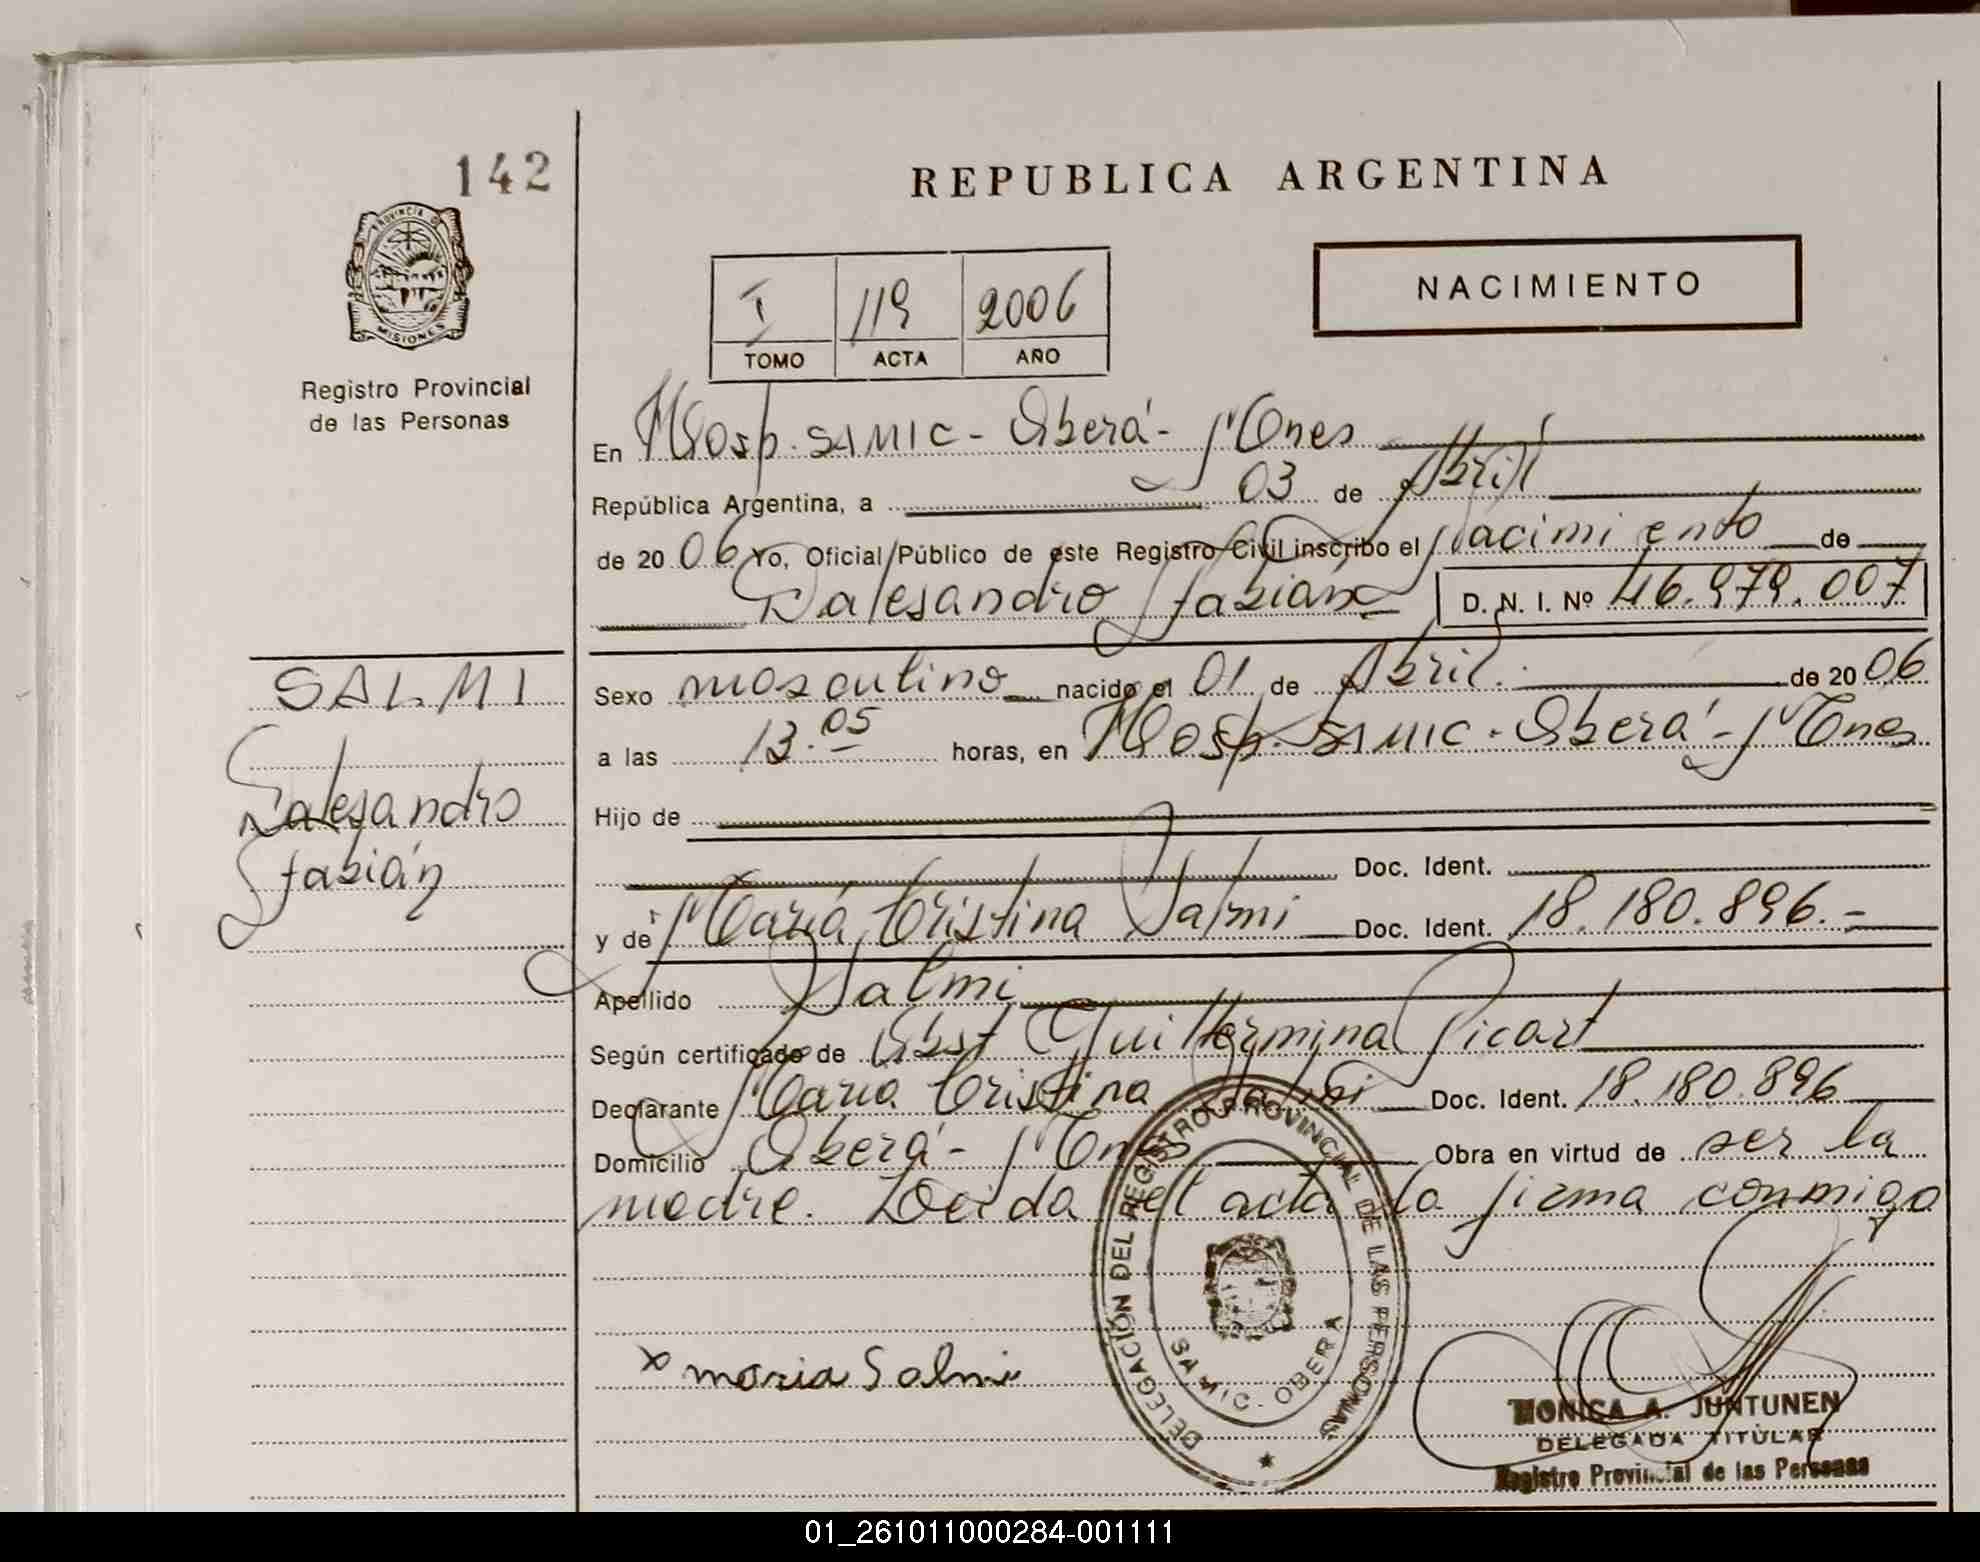 142
REPUBLICA ARGENTINA
PROVINCIA DE
MISIONES
Registro Provincial
de las Personas
I 119 2006
TOMO ACTA AÑO
NACIMIENTO
En Hosp. SAMIC - Oberá - Mnes
República Argentina, a 03 de Abril
de 20 06 Yo, Oficial Público de este Registro Civil inscribo el Nacimiento de
Dalesandro Fabián D. N. I. Nº 46.979.007
SALMI
Dalesandro
Fabián
Sexo masculino nacido el 01 de Abril. de 20 06
a las 13.05 horas, en Hosp. SAMIC - Oberá - Mnes
Hijo de
Doc. Ident.
y de María Cristina Salmi Doc. Ident. 18.180.896.-
Apellido Salmi
Según certificado de Obst Guillermina Picart
Declarante María Cristina Salmi Doc. Ident. 18.180.896
Domicilio Oberá - Mnes Obra en virtud de ser la
madre. Leída el acta la firma conmigo
DELEGACIÓN DEL REGISTRO PROVINCIAL DE LAS PERSONAS
SAMIC - OBERA
x maria Salmi
MONICA A. JUNTUNEN
DELEGADA TITULAR
Registro Provincial de las Personas
01_261011000284-001111